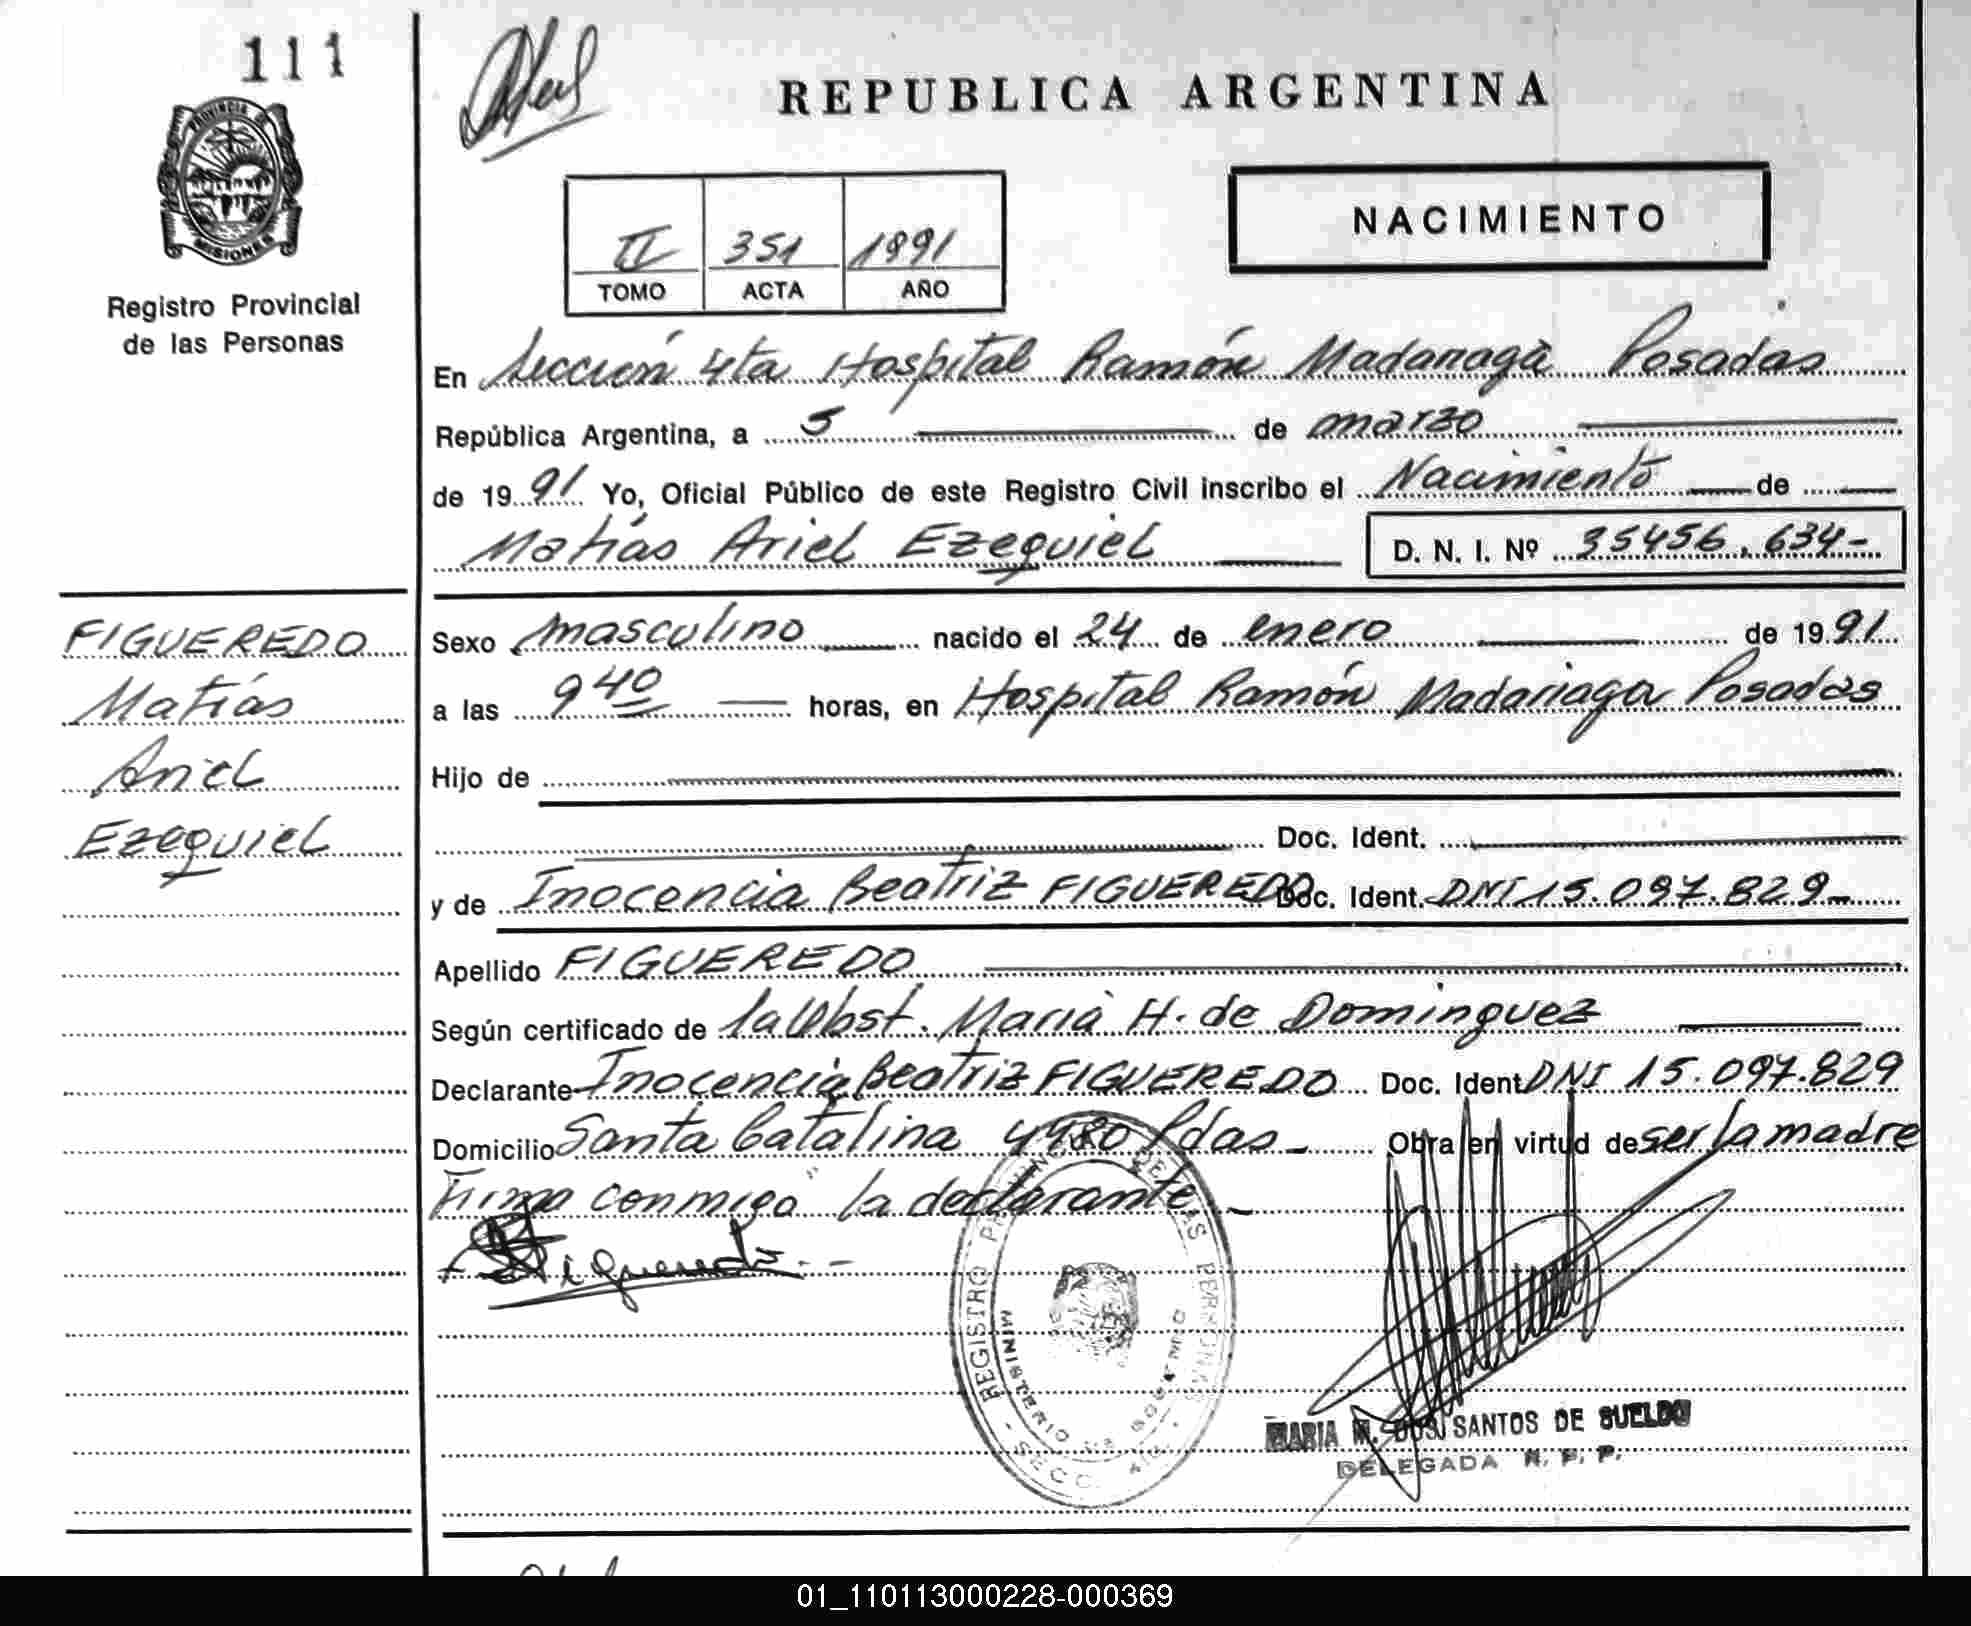 111
REPUBLICA ARGENTINA
PROVINCIA DE
MISIONES
Registro Provincial
de las Personas
NACIMIENTO
II 351 1991
TOMO ACTA AÑO
En Sección 4ta Hospital Ramón Madariaga Posadas
República Argentina, a 5 de marzo
de 1991 Yo, Oficial Público de este Registro Civil inscribo el Nacimiento de
Matías Ariel Ezequiel D. N. I. Nº 35456.634-
FIGUEREDO
Matías
Ariel
Ezequiel
Sexo masculino nacido el 24 de enero de 1991
a las 9 40 horas, en Hospital Ramón Madariaga Posadas
Hijo de
Doc. Ident.
y de Inocencia Beatriz FIGUEREDO Doc. Ident. DNI 15.097.829-
Apellido FIGUEREDO
Según certificado de la Obst. María H. de Dominguez
Declarante Inocencia Beatriz FIGUEREDO Doc. Ident DNI 15.097.829
Domicilio Santa Catalina 4980 Pdas- Obra en virtud de ser la madre
Firma conmigo la declarante-
Figueredo
REGISTRO PROVINCIAL DE LAS PERSONAS
MINISTERIO DE GOBIERNO
SECC. 4ta.
MARIA M. DOS SANTOS DE SUELDO
DELEGADA R. P. P.
01_110113000228-000369